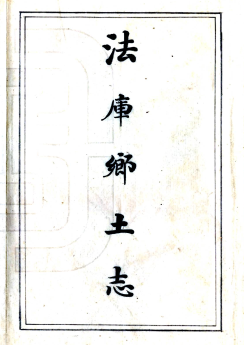 法庫鄉土志